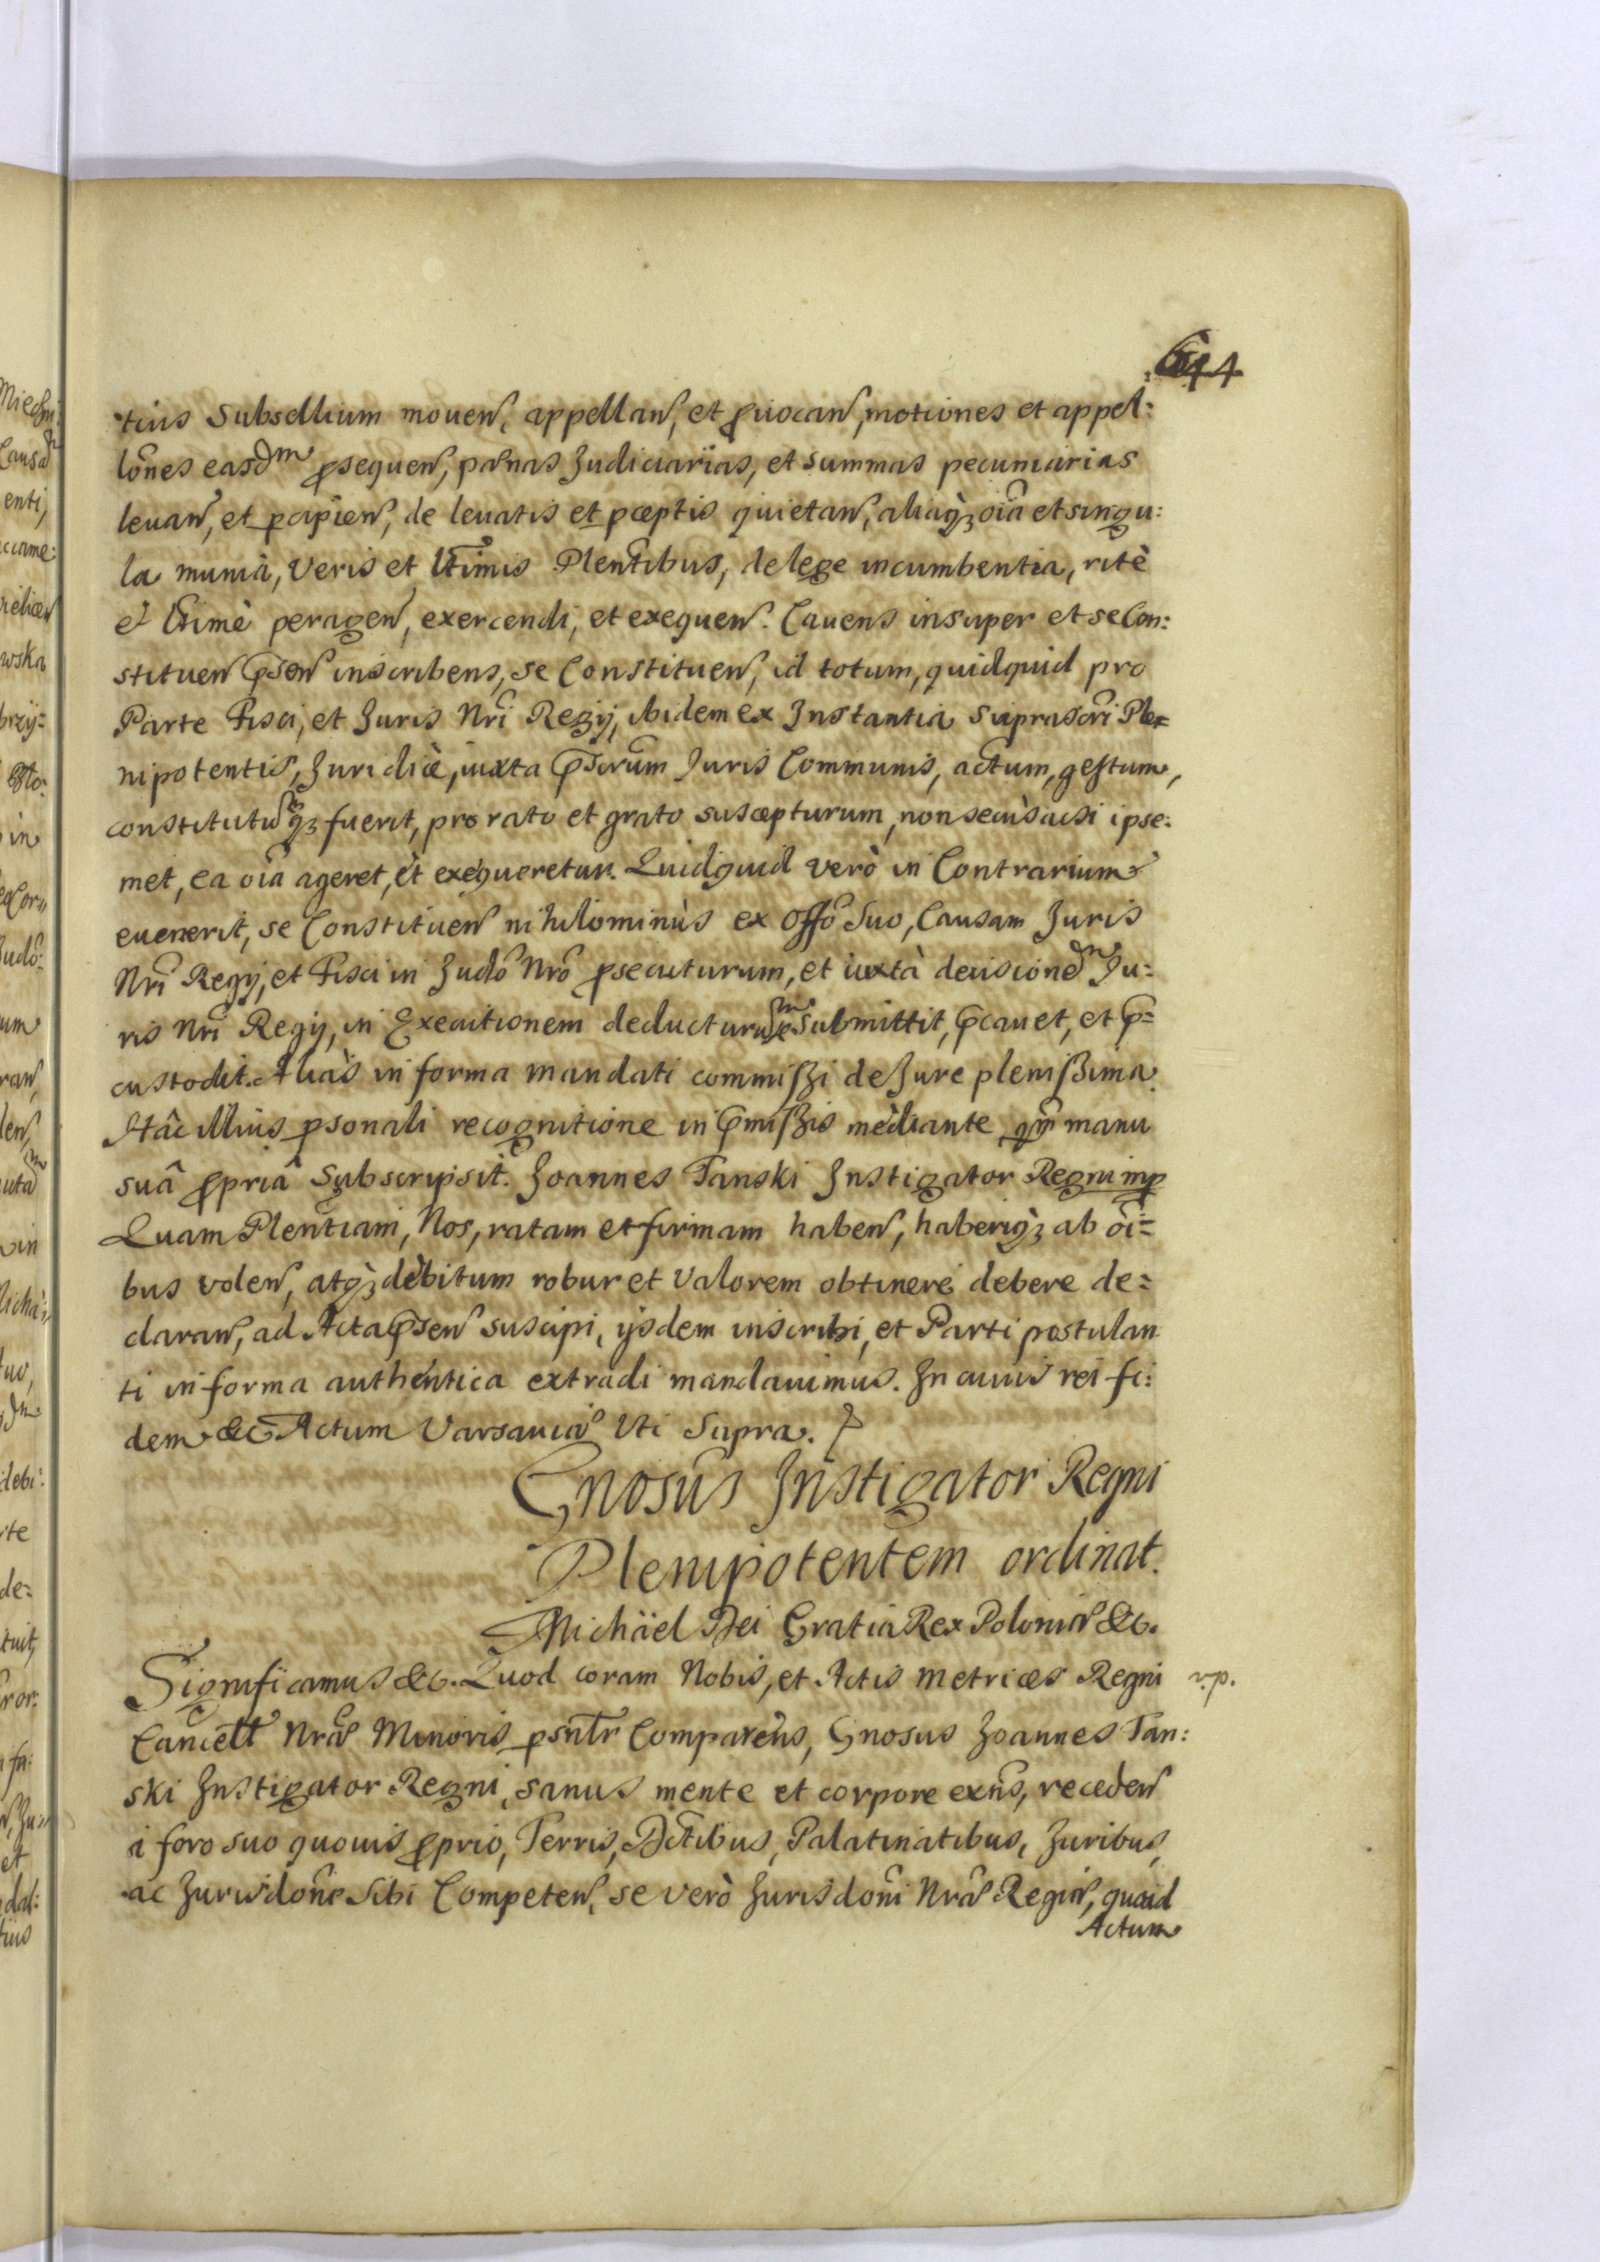 tius Subsellium mouen, appellan, et pvocan, motiones et appel:
lônes easdm psequen, pænas Judiciarias, et summas pecuniarias
leuan, et pcipien, de leuatis et pceptis quietan, aliaq3 oia et singu:
la munia, veris et ltimis Plentibus, de lege incumbentia, ritè
et ltimè peragen, exercendi, et exequen. Cauens insuper et se Con:
stituen psen inscribens, se Constituen, id totum, quidquid pro
Parte Fisci, et Juris Nri Regij, ibidem ex Instantia suprascri Ple=
nipotentis, Juridicè, iuxta pscrum Juris Communis, actum, gestum,
constitutuq3 fuerit, pro rato et grato suscepturum, non secùs acsi ipse:
met, ea oia ageret, et exequeretur. Quidquid verò in Contrarium
euenerit, se Constituen nihilominùs ex offo suo, Causam Juris
Nri Regij, et Fisci in Judo Nro psecuturum, et iuxtà decisionem Ju:
ris Nri Regij, in Executionem deducturum se submittit, pcauet, et p=
custodit. Aliàs in forma mandati commissi de Jure plenissima.
Stâc illius psonali recognitione in pmissis mediante, qm manu
suâ ppriâ subscripsit. Joannes Tanski Instigator Regni mp
Quam Plentiam, Nos, ratam et firmam haben, haberiq3 ab oi=
bus volen, atq3 debitum robur et valorem obtinere debere de=
claran, ad Acta psen suscipi, ijsdem inscribi, et Parti postulan
ti in forma authentica extradi mandauimus. In cuius rei fi:
dem &c Actum Varsauiæ Uti Supra.
Gnosus Instigator Regni
Plenipotentem ordinat.
Michäel Dei Gratia Rex Poloniæ &c.
Significamus &c. Quod coram Nobis, et Actis Metrices Regni v.p.
Cancell Nræ Minoris psnltr Comparens, Gnosus Joannes Tan:
ski Instigator Regni, sanus mente et corpore exns, receden
à foro suo quouis pprio, Terris, Dctibus, Palatinatibus, Juribus,
ac Jurisdone sibi Competen, se verò Jurisdoni Nræ Regiæ, quoad
Actum